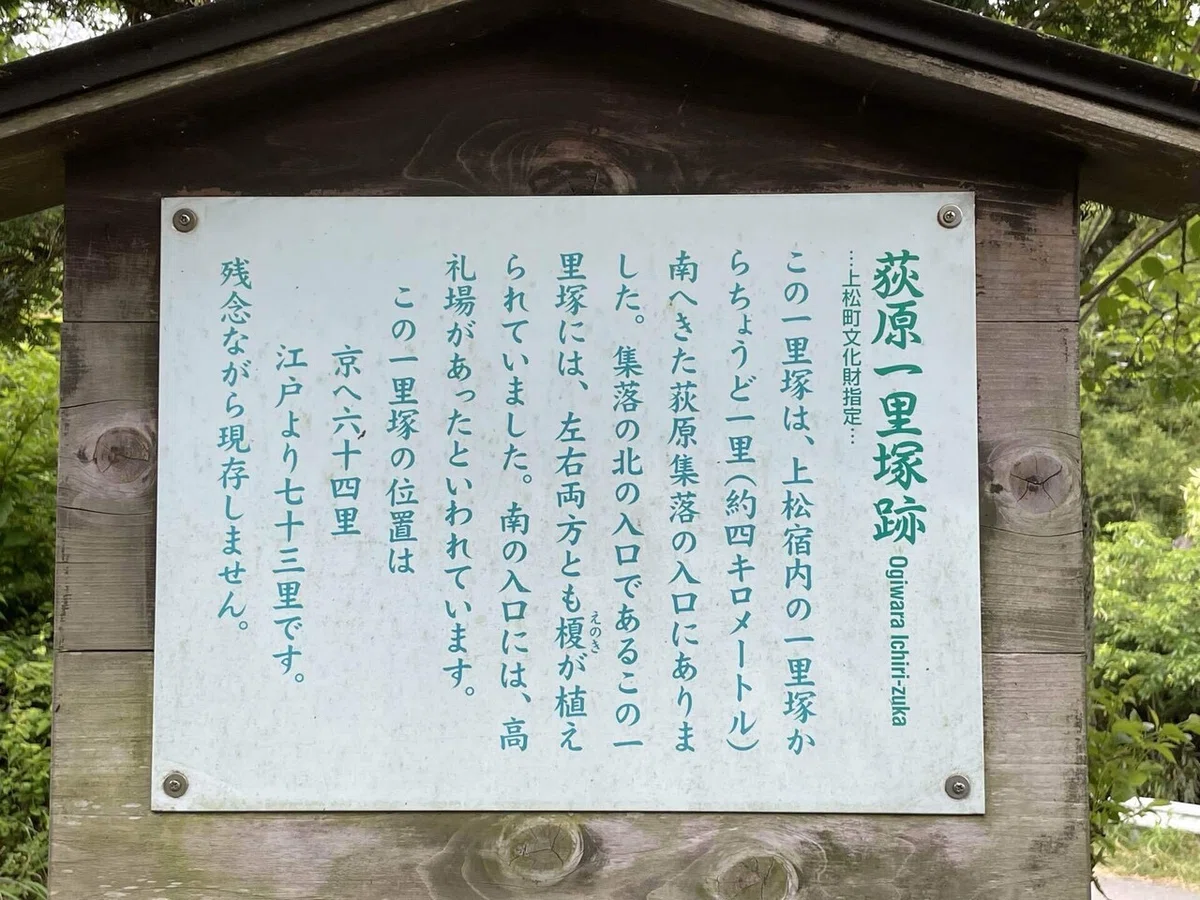 荻原一里塚跡 Ogiwara Ichiri-zuka
…上松町文化財指定…
この一里塚は、上松宿内の一里塚か
らちょうど一里（約四キロメートル）
南へきた荻原集落の入口にありま
した。集落の北の入口であるこの一
里塚には、左右両方とも榎が植え
えのき
られていました。南の入口には、高
札場があったといわれています。
この一里塚の位置は
京へ六十四里
江戸より七十三里です。
残念ながら現存しません。